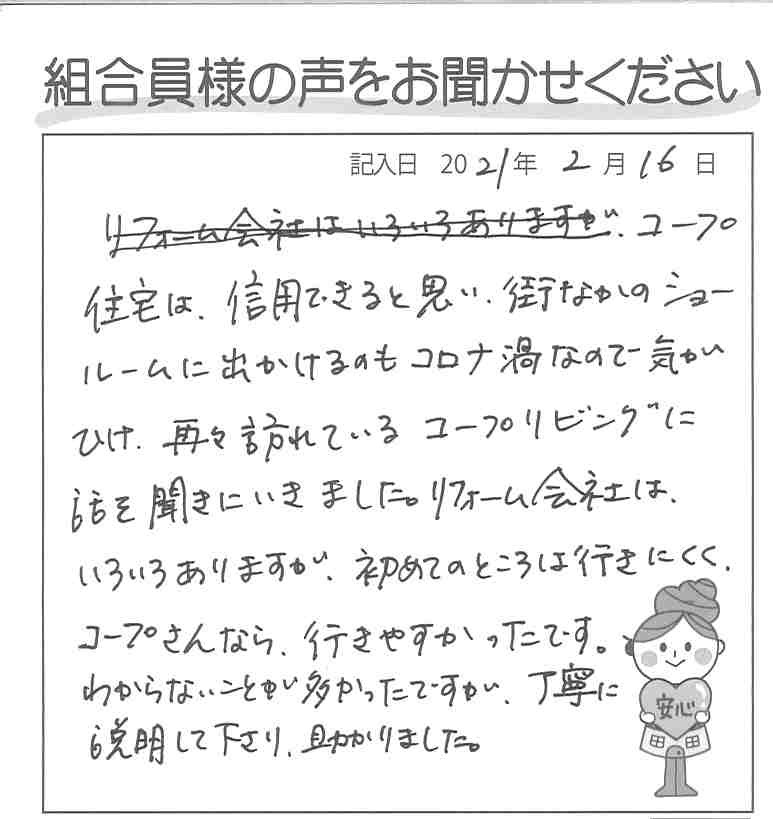 組合員様の声をお聞かせください
記入日 2021年 2月16日
リフォーム会社はいろいろありますが、コープ
住宅は、信用できると思い、街なかのショー
ルームに出かけるのもコロナ渦なので気が
ひけ、再々訪れているコープリビングに
話を聞きにいきました。リフォーム会社は、
いろいろありますが、初めてのところは行きにくく、
コープさんなら、行きやすかったです。
わからないことが多かったですが、丁寧に
説明して下さり、助かりました。
安心